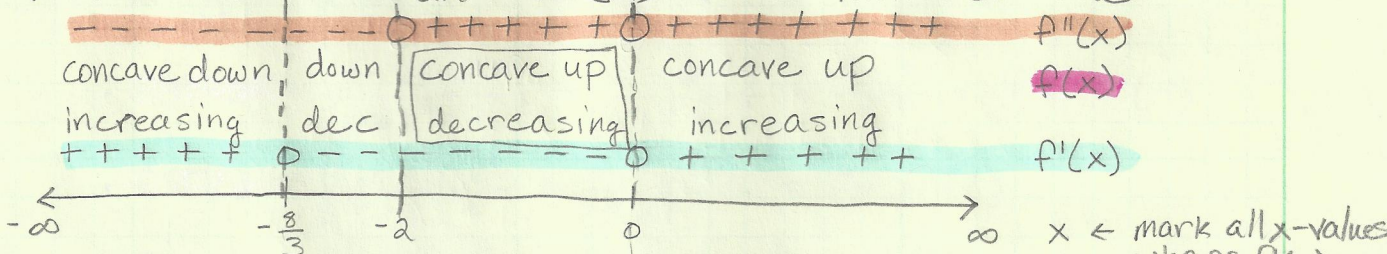 - - - - - - - - - O + + + + + O + + + + + + + + f''(x)
concave down down concave up concave up f(x)
increasing dec decreasing increasing
+ + + + + O - - - - - - - O + + + + + f'(x)
-∞ -8/3 -2 0 ∞ x ← mark all x-values